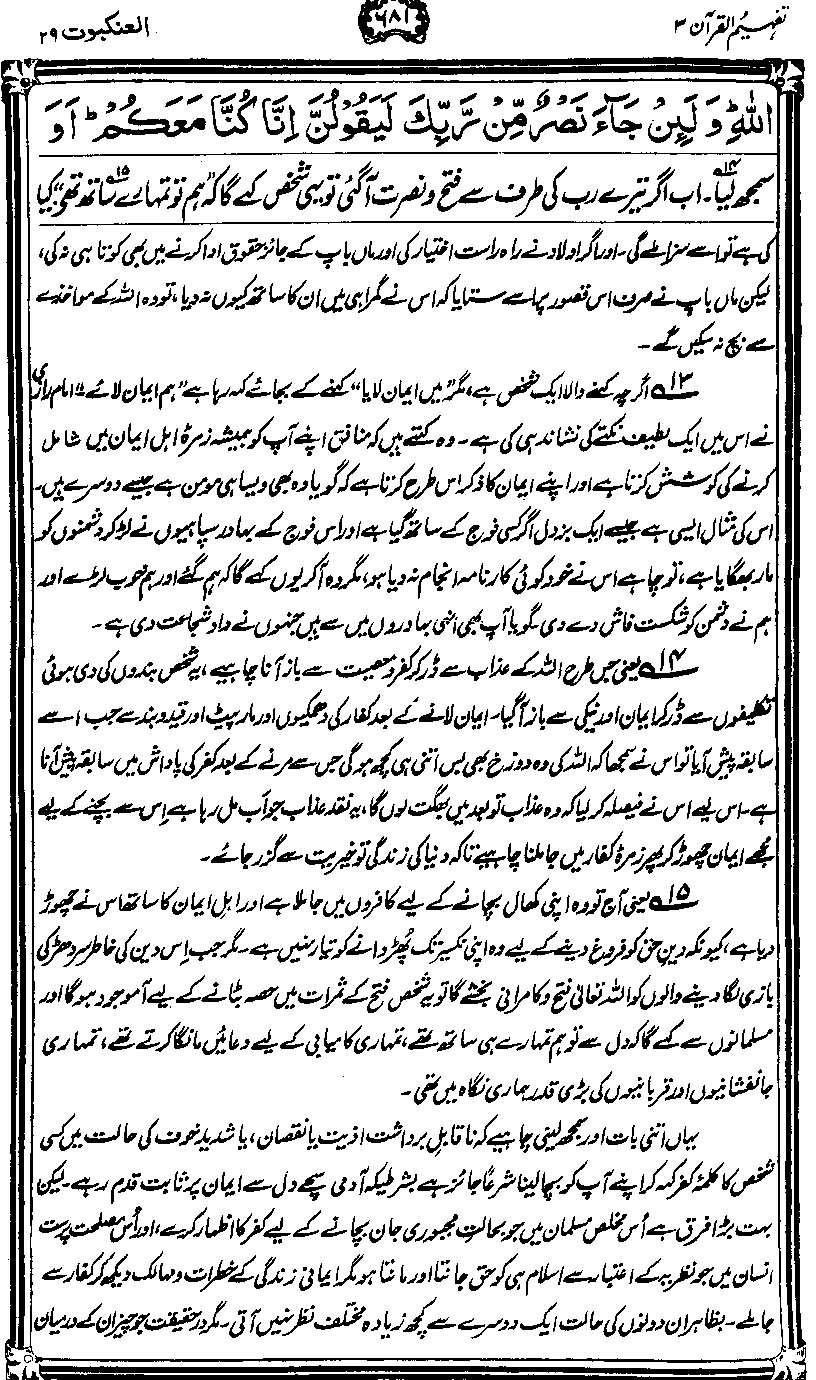 تفہیم القرآن ۳
۶۸۱
العنکبوت ۲۹
اللّٰهِ ؕ وَ لَئِنْ جَآءَ نَصْرٌ مِّنْ رَّبِّكَ لَيَقُوْلُنَّ اِنَّا كُنَّا مَعَكُمْ ؕ اَوَ
سمجھ لیا۱۴۔ اب اگر تیرے رب کی طرف سے فتح و نصرت آگئی تو یہی شخص کہے گا کہ ”ہم تو تمہارے ساتھ تھے“۱۵۔ کیا
کی ہے تو اسے سزا ملے گی۔ اور اگر اولاد نے راہ راست اختیار کی اور ماں باپ کے جائز حقوق ادا کرنے میں بھی کوتاہی نہ کی،
لیکن ماں باپ نے صرف اس قصور پر اسے ستایا کہ اس نے گمراہی میں ان کا ساتھ کیوں نہ دیا، تو وہ اللہ کے مواخذے
سے بچ نہ سکیں گے۔
۱۳ اگرچہ کہنے والا ایک شخص ہے، مگر ”میں ایمان لایا“ کہنے کے بجائے کہہ رہا ہے ”ہم ایمان لائے“۔ امام رازی
نے اس میں ایک لطیف نکتے کی نشاندہی کی ہے۔ وہ کہتے ہیں کہ منافق اپنے آپ کو ہمیشہ زمرۂ اہل ایمان میں شامل
کرنے کی کوشش کرتا ہے اور اپنے ایمان کا ذکر اس طرح کرتا ہے کہ گویا وہ بھی ویسا ہی مومن ہے جیسے دوسرے ہیں۔
اس کی مثال ایسی ہے جیسے ایک بزدل اگر کسی فوج کے ساتھ گیا ہے اور اس فوج کے بہادر سپاہیوں نے لڑ کر دشمنوں کو
مار بھگایا ہے، تو چاہے اس نے خود کوئی کارنامہ انجام نہ دیا ہو، مگر وہ آ کر یوں کہے گا کہ ہم گئے اور ہم خوب لڑے اور
ہم نے دشمن کو شکست فاش دے دی گویا آپ بھی انہی بہادروں میں سے ہیں جنہوں نے داد شجاعت دی ہے۔
۱۴ یعنی جس طرح اللہ کے عذاب سے ڈر کر کفر و معصیت سے باز آنا چاہیے، یہ شخص بندوں کی دی ہوئی
تکلیفوں سے ڈر کر ایمان اور نیکی سے باز آ گیا۔ ایمان لانے کے بعد کفار کی دھمکیوں اور مار پیٹ اور قید و بند سے جب اسے
سابقہ پیش آیا تو اس نے سمجھا کہ اللہ کی وہ دوزخ بھی بس اتنی ہی کچھ ہوگی جس سے مرنے کے بعد کفر کی پاداش میں سابقہ پیش آنا
ہے۔ اس لیے اس نے فیصلہ کر لیا کہ وہ عذاب تو بعد میں بھگت لوں گا، یہ نقد عذاب جو اب مل رہا ہے اِس سے بچنے کے لیے
مجھے ایمان چھوڑ کر پھر زمرۂ کفار میں جا ملنا چاہیے تاکہ دنیا کی زندگی تو خیریت سے گزر جائے۔
۱۵ یعنی آج تو وہ اپنی کھال بچانے کے لیے کافروں میں جا ملا ہے اور اہل ایمان کا ساتھ اس نے چھوڑ
دیا ہے، کیونکہ دین حق کو فروغ دینے کے لیے وہ اپنی نکسیر تک پُھڑوانے کو تیار نہیں ہے۔ مگر جب اِس دین کی خاطر سر دھڑ کی
بازی لگا دینے والوں کو اللہ تعالیٰ فتح و کامرانی بخشے گا تو یہ شخص فتح کے ثمرات میں حصہ بٹانے کے لیے آموجود ہوگا اور
مسلمانوں سے کہے گا کہ دل سے تو ہم تمہارے ہی ساتھ تھے، تمہاری کامیابی کے لیے دعائیں مانگا کرتے تھے، تمہاری
جانفشانیوں اور قربانیوں کی بڑی قدر ہماری نگاہ میں تھی۔
یہاں اتنی بات اور سمجھ لینی چاہیے کہ ناقابل برداشت اذیت یا نقصان، یا شدید خوف کی حالت میں کسی
شخص کا کلمۂ کفر کہہ کر اپنے آپ کو بچا لینا شرعاً جائز ہے بشرطیکہ آدمی سچے دل سے ایمان پر ثابت قدم رہے۔ لیکن
بہت بڑا فرق ہے اُس مخلص مسلمان میں جو بحالتِ مجبوری جان بچانے کے لیے کفر کا اظہار کرے، اور اُس مصلحت پرست
انسان میں جو نظریہ کے اعتبار سے اسلام ہی کو حق جانتا اور مانتا ہو مگر ایمانی زندگی کے خطرات و مہالک دیکھ کر کفار سے
جا ملے۔ بظاہر ان دونوں کی حالت ایک دوسرے سے کچھ زیادہ مختلف نظر نہیں آتی۔ مگر درحقیقت جو چیز ان کے درمیان